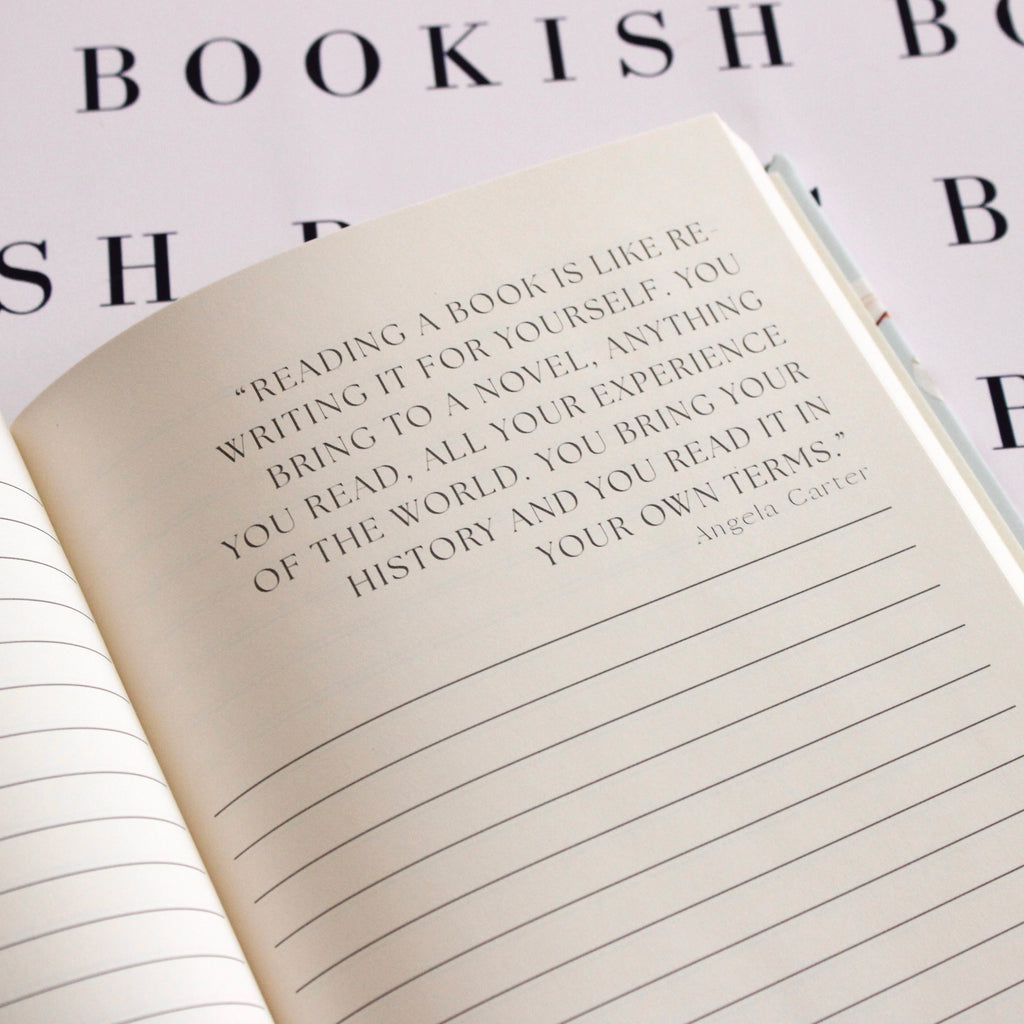 BOOKISH
SH
"READING A BOOK IS LIKE RE-
WRITING IT FOR YOURSELF. YOU
BRING TO A NOVEL, ANYTHING
YOU READ, ALL YOUR EXPERIENCE
OF THE WORLD. YOU BRING YOUR
HISTORY AND YOU READ IT IN
YOUR OWN TERMS."
Angela Carter